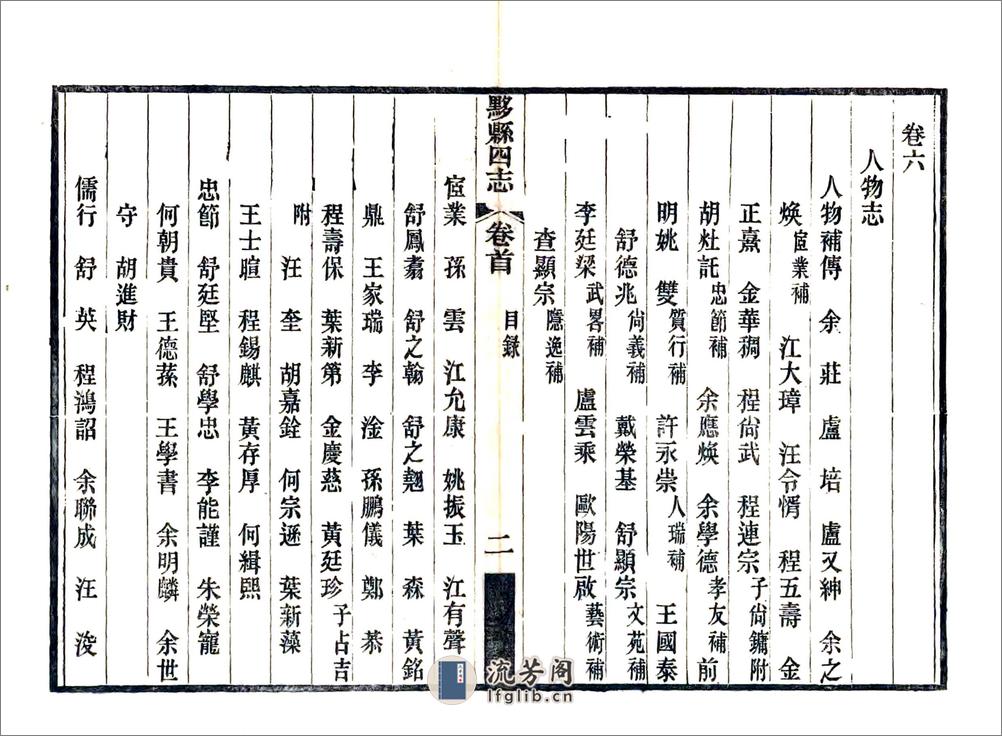 卷六
人物志
人物補傳 余 莊 盧 培 盧又紳 余之
煥宦業補 江大璋 汪令愲 程五壽 金
正熹 金華稠 程尙武 程連宗子尙鏞附
胡灶託忠節補 余應煥 余學德孝友補前
明姚 雙質行補 許永崇人瑞補 王國泰
舒德兆尙義補 戴榮基 舒顯宗文苑補
李廷梁武畧補 盧雲乘 歐陽世啟藝術補
查顯宗隱逸補
黟縣四志 卷首 目録 二
宦業 孫 雲 江允康 姚振玉 江有聲
舒鳳翥 舒之翰 舒之翹 葉 森 黃銘
鼎 王家瑞 李 淦 孫鵬儀 鄭 恭
程壽保 葉新第 金慶慈 黃廷珍子占吉
附 汪 奎 胡嘉銓 何宗遜 葉新藻
王士暄 程錫麒 黃存厚 何緝熙
忠節 舒廷堅 舒學忠 李能謹 朱榮寵
何朝貴 王德蓀 王學書 余明麟 余世
守 胡進財
儒行 舒 英 程鴻詔 余聯成 汪 浚
流芳阁
lfglib.cn